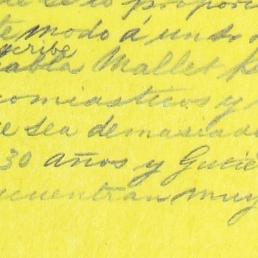 se lo propor
modo á un
scribe
habla Mallet
comiasticos y
se sea demasiado
30 años y Gutie
cuentran muy